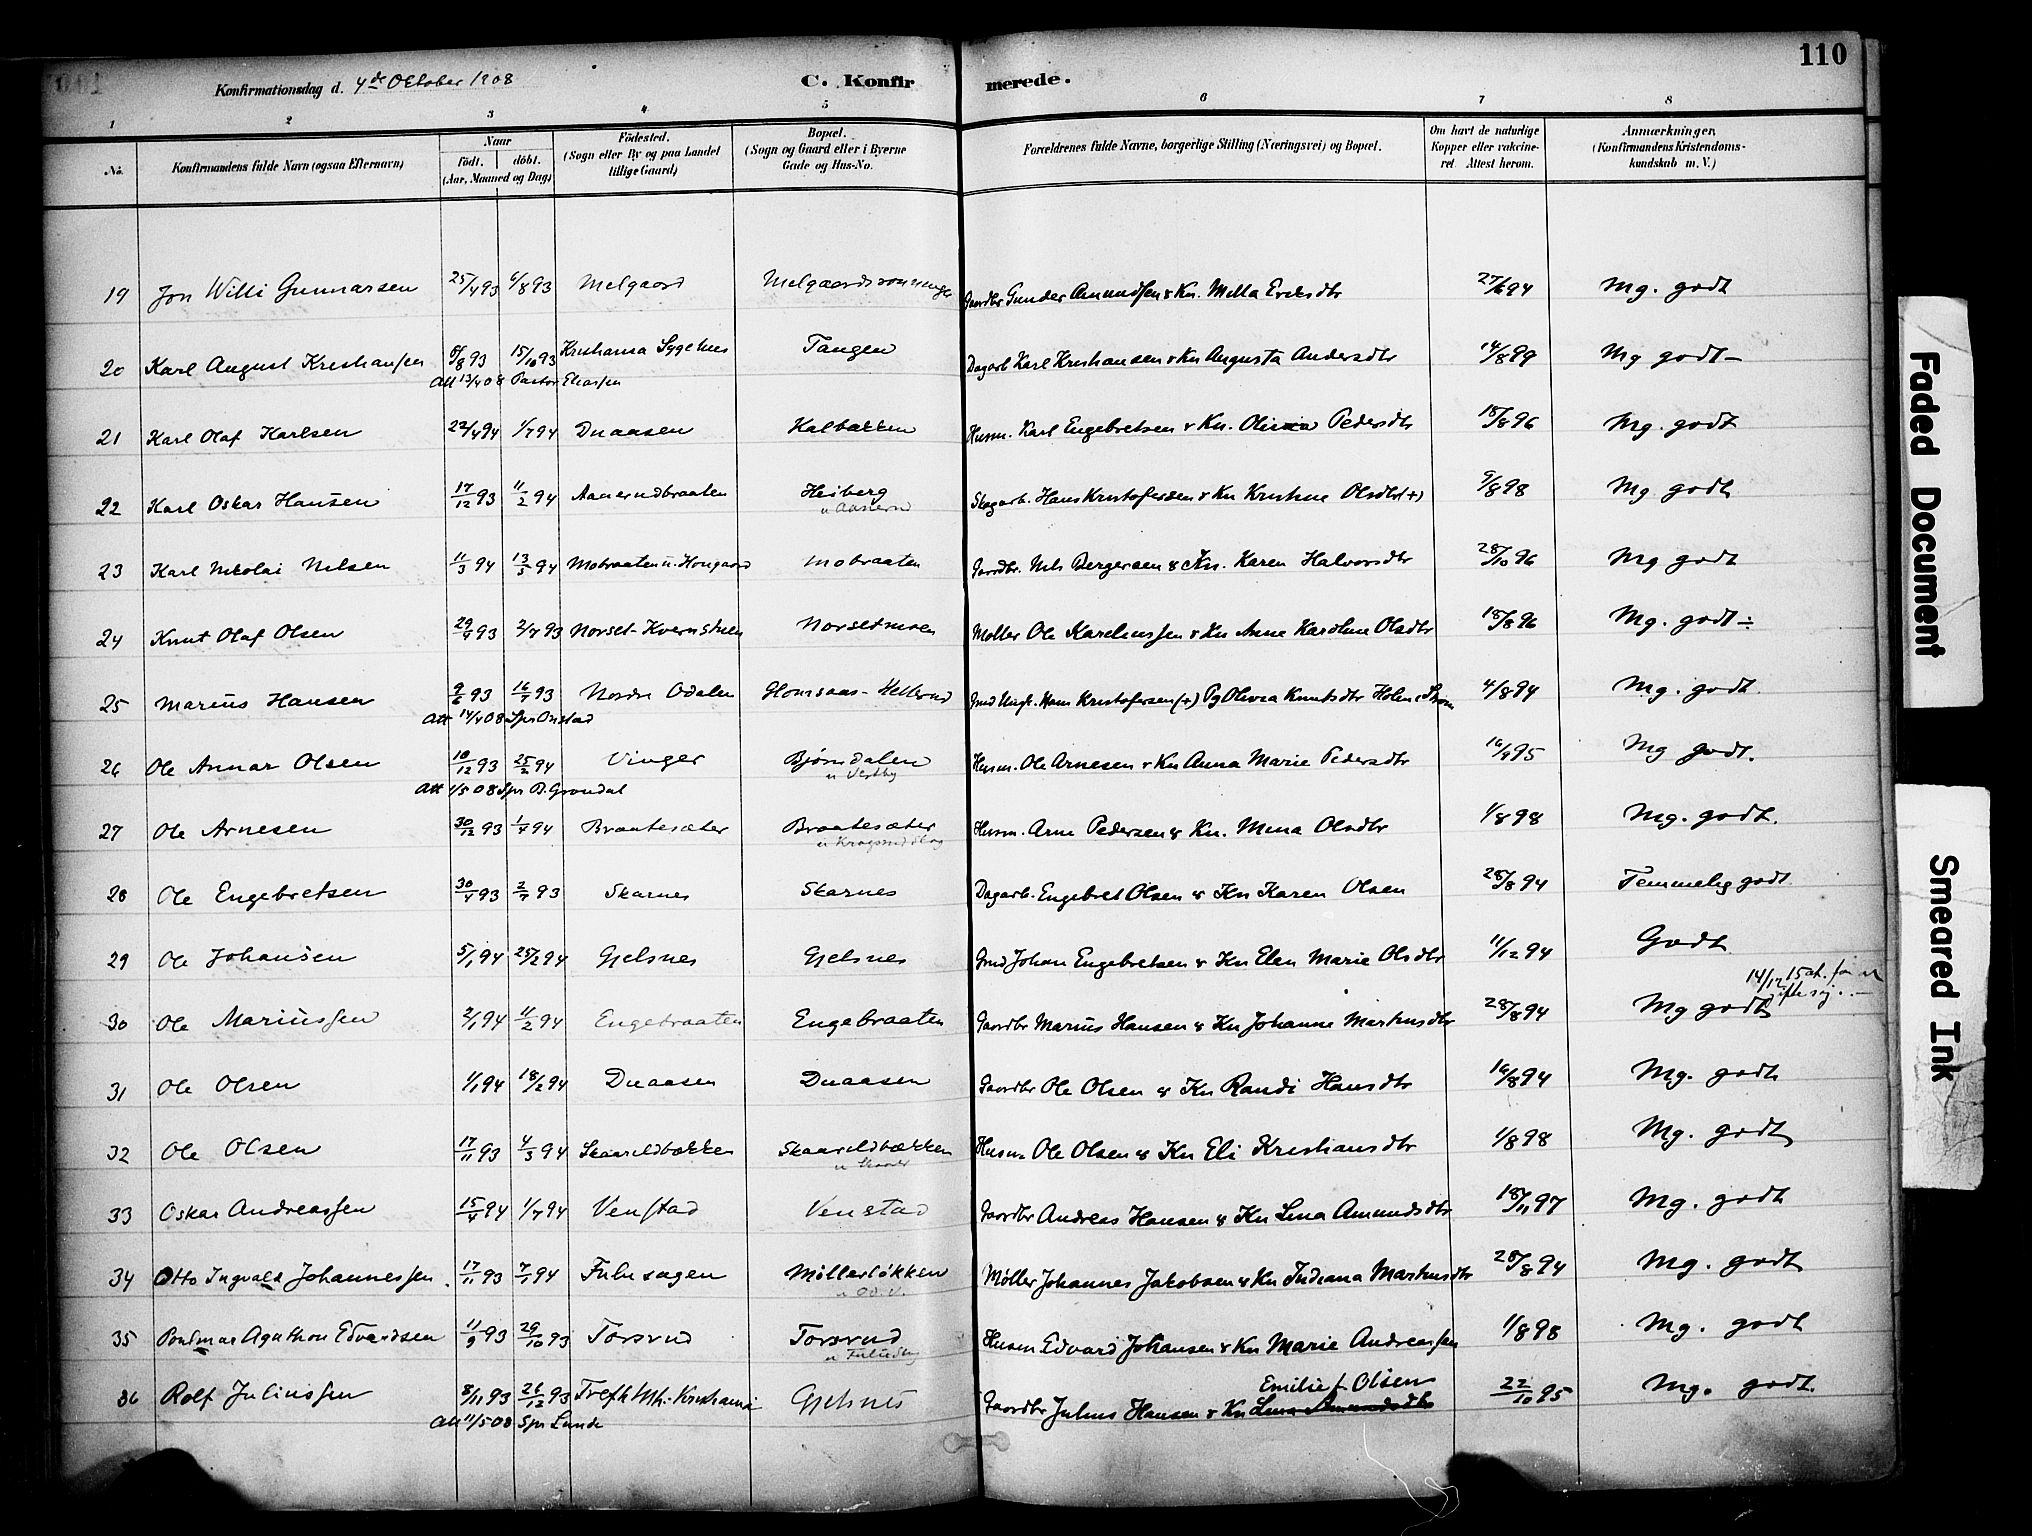 110
Konfirmationsdag d. 4de Oktober 1908 C. Konfir merede.
1 2 3 4 5 6 7 8
No. Konfirmandens fulde Navn (ogsaa Efternavn) Naar født. døbt. (Aar, Maaned og Dag) Fødested. (Sogn eller By og paa Landet tillige Gaard) Bopæl. (Sogn og Gaard eller i Byerne Gade og Hus-No. Forældrenes fulde Navne, borgerlige Stilling (Næringsvei) og Bopæl. Om havt de naturlige Kopper eller vakcineret Attest herom. Anmærkninger. (Konfirmandens Kristendomskundskab m. V.)
19 Jon Willi Gunnarsen 25/4 93 6/8 93 Melgaard Gaardbr Gunder Amundsen & Kn. Milla Eriksdtr 27/6 94 Mg. godt
20 Karl August Kristiansen 8/8 93 15/10 93 Kristiania Sygehus Tangen Dagarb Karl Kristiansen & Kn Augusta Andersdtr 14/8 99 Mg godt-
Att 13/4 08 Pastor Eliassen
21 Karl Olaf Karlsen 22/4 94 1/7 94 Duaasen Kalbakken Husm. Karl Engebretsen & Kn. Pedersdtr 18/8 96 Mg. godt
22 Karl Oskar Hansen 17/12 93 11/2 94 Aanerudbraaten Heiberg Skogarb. Hans Kristofersen & Kn Kristine Olsdtr (+) 9/8 98 Mg godt
u Aanerud
23 Karl Nikolai Nilsen 11/3 94 13/5 94 Mobraaten u. Hougaard Mobraaten Gaardbr. Nils Bergersen & Kn. Karen Halvorsdtr 28/10 96 Mg godt
24 Knut Olaf Olsen 29/4 93 2/7 93 Norset-Kvernstuen Norsetmoen Møller Ole Kareliussen & Kn Anne Karoline Olsdtr 18/8 96 Mg. godt ÷
25 Marius Hansen 9/6 93 16/7 93 Nordre Odalen Glomsaas- Hans Kristofersen (+) Pg Olivia Knutsdtr Holen i Strøm 4/8 94 Mg. godt.
Att 14/4 08 Spr Onstad
26 Ole Annar Olsen 10/12 93 25/2 94 Vinger Bjørndalen Husm. Ole Arnesen & Kn Anna Marie Pedersdtr 16/9 95 Mg godt.
u Vestby
Att 1/5 08 Spr B. Grøndal
27 Ole Arnesen 30/12 93 1/4 94 Braatesæter Braatesæter Husm. Arne Pedersen & Kn. Mina Olsdtr 1/8 98 Mg. godt.
28 Ole Engebretsen 30/4 93 2/7 93 Skarnes Skarnes Dagarb. Engebret Olsen & Kn Karen Olsen 28/8 94 Temmelig godt
29 Ole Johansen 5/1 94 25/2 94 Gjelsnes Gjelsnes Johan Engebretsen & Kn Elen Marie Olsdtr 11/12 94 Godt
14/12 15 at.
30 Ole Mariussen 2/1 94 11/2 94 Engebraaten Engebraaten Gaardbr Marius Hansen & Kn Johanne Martinsdtr 28/8 94 Mg godt
31 Ole Olsen 1/1 94 18/2 94 Duaasen Duaasen Gaardbr Ole Olsen & Kn Randi Hansdtr 16/8 94 Mg. godt
32 Ole Olsen 17/11 93 4/3 94 Skaarildbækken Skaarildbækken Husm. Ole Olsen & Kn Eli Kristiansdtr 1/8 98 Mg. godt
33 Oskar Andreassen 15/4 94 1/7 94 Venstad Venstad Gaardbr Andreas Hansen & Kn Lina Amundsdtr 18/11 97 Mg. godt
34 Otto Ingvald Johannessen 17/11 93 7/1 94 Fulusagen Møllerløkken Møller Johannes Jakobsen & Kn Indiana Martinsdtr 28/8 94 Mg. godt
35 Agathon Edvardsen 11/9 93 29/10 93 Torsrud Torsrud Husm Edvard Johansen & Kn Marie Andreassen 1/8 98 Mg. godt
36 Rolf Juliussen 8/11 93 26/12 93 Trefk. Mh. Kristiania Gjelsnes Gaardbr Julius Hansen & Kn Lina Amundsdtr Emilie f. Olsen 22/10 95 Mg. godt.
Att 11/5 08 Spr Lunde
Faded Document
Smeared Ink